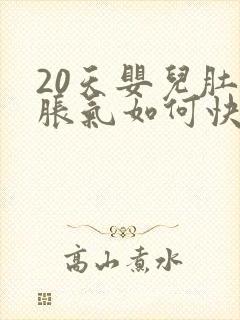 20天嬰兒肚
脹氣如何快
高山煮水